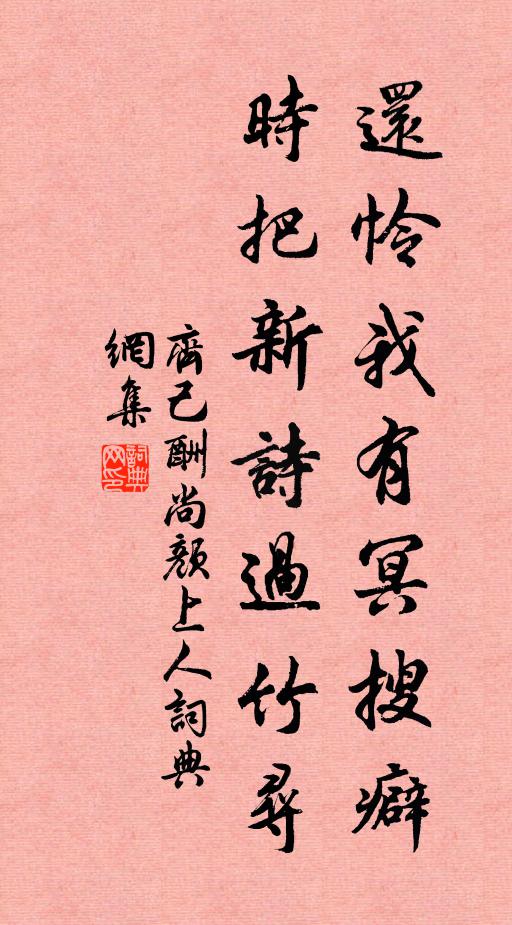 還怜我有冥搜癖
時把新詩過竹尋
齊己酬尚顏上人詞典
網集
詞典
网印